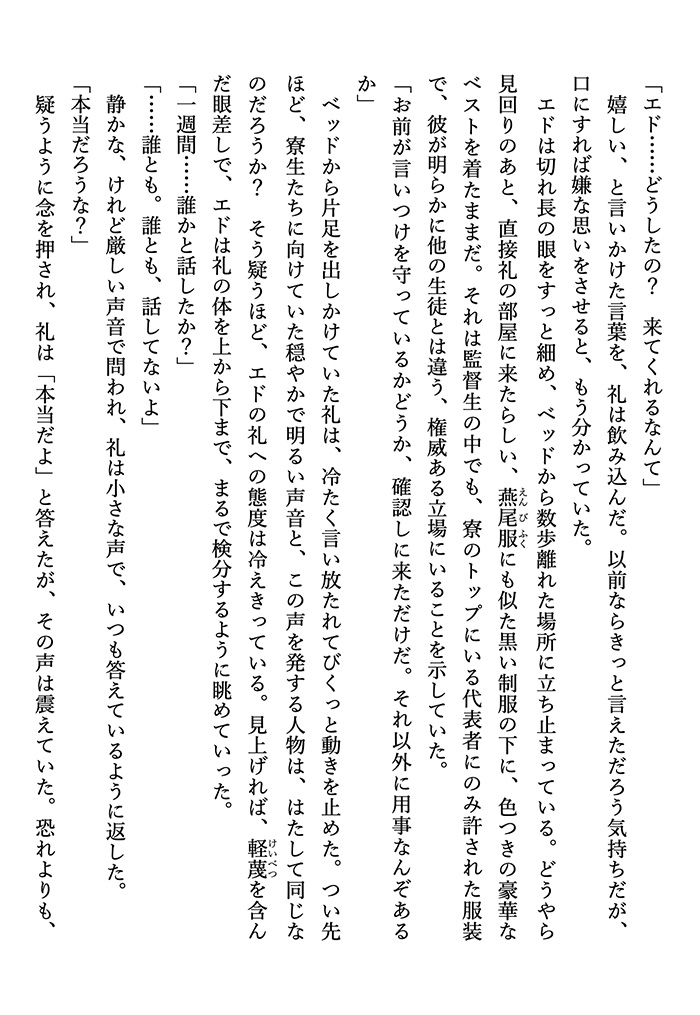 「エド……どうしたの？　来てくれるなんて」
　嬉しい、と言いかけた言葉を、礼は飲み込んだ。以前ならきっと言えただろう気持ちだが、
口にすれば嫌な思いをさせると、もう分かっていた。
　エドは切れ長の眼をすっと細め、ベッドから数歩離れた場所に立ち止まっている。どうやら
見回りのあと、直接礼の部屋に来たらしい、燕尾服にも似た黒い制服の下に、色つきの豪華な
ベストを着たままだ。それは監督生の中でも、寮のトップにいる代表者にのみ許された服装
で、彼が明らかに他の生徒とは違う、権威ある立場にいることを示していた。
「お前が言いつけを守っているかどうか、確認しに来ただけだ。それ以外に用事なんぞある
か」
　ベッドから片足を出しかけていた礼は、冷たく言い放たれてびくっと動きを止めた。つい先
ほど、寮生たちに向けていた穏やかで明るい声音と、この声を発する人物は、はたして同じな
のだろうか？　そう疑うほど、エドの礼への態度は冷えきっている。見上げれば、軽蔑を含ん
だ眼差しで、エドは礼の体を上から下まで、まるで検分するように眺めていった。
「一週間……誰かと話したか？」
「……誰とも。誰とも、話してないよ」
　静かな、けれど厳しい声音で問われ、礼は小さな声で、いつも答えているように返した。
「本当だろうな？」
　疑うように念を押され、礼は「本当だよ」と答えたが、その声は震えていた。恐れよりも、